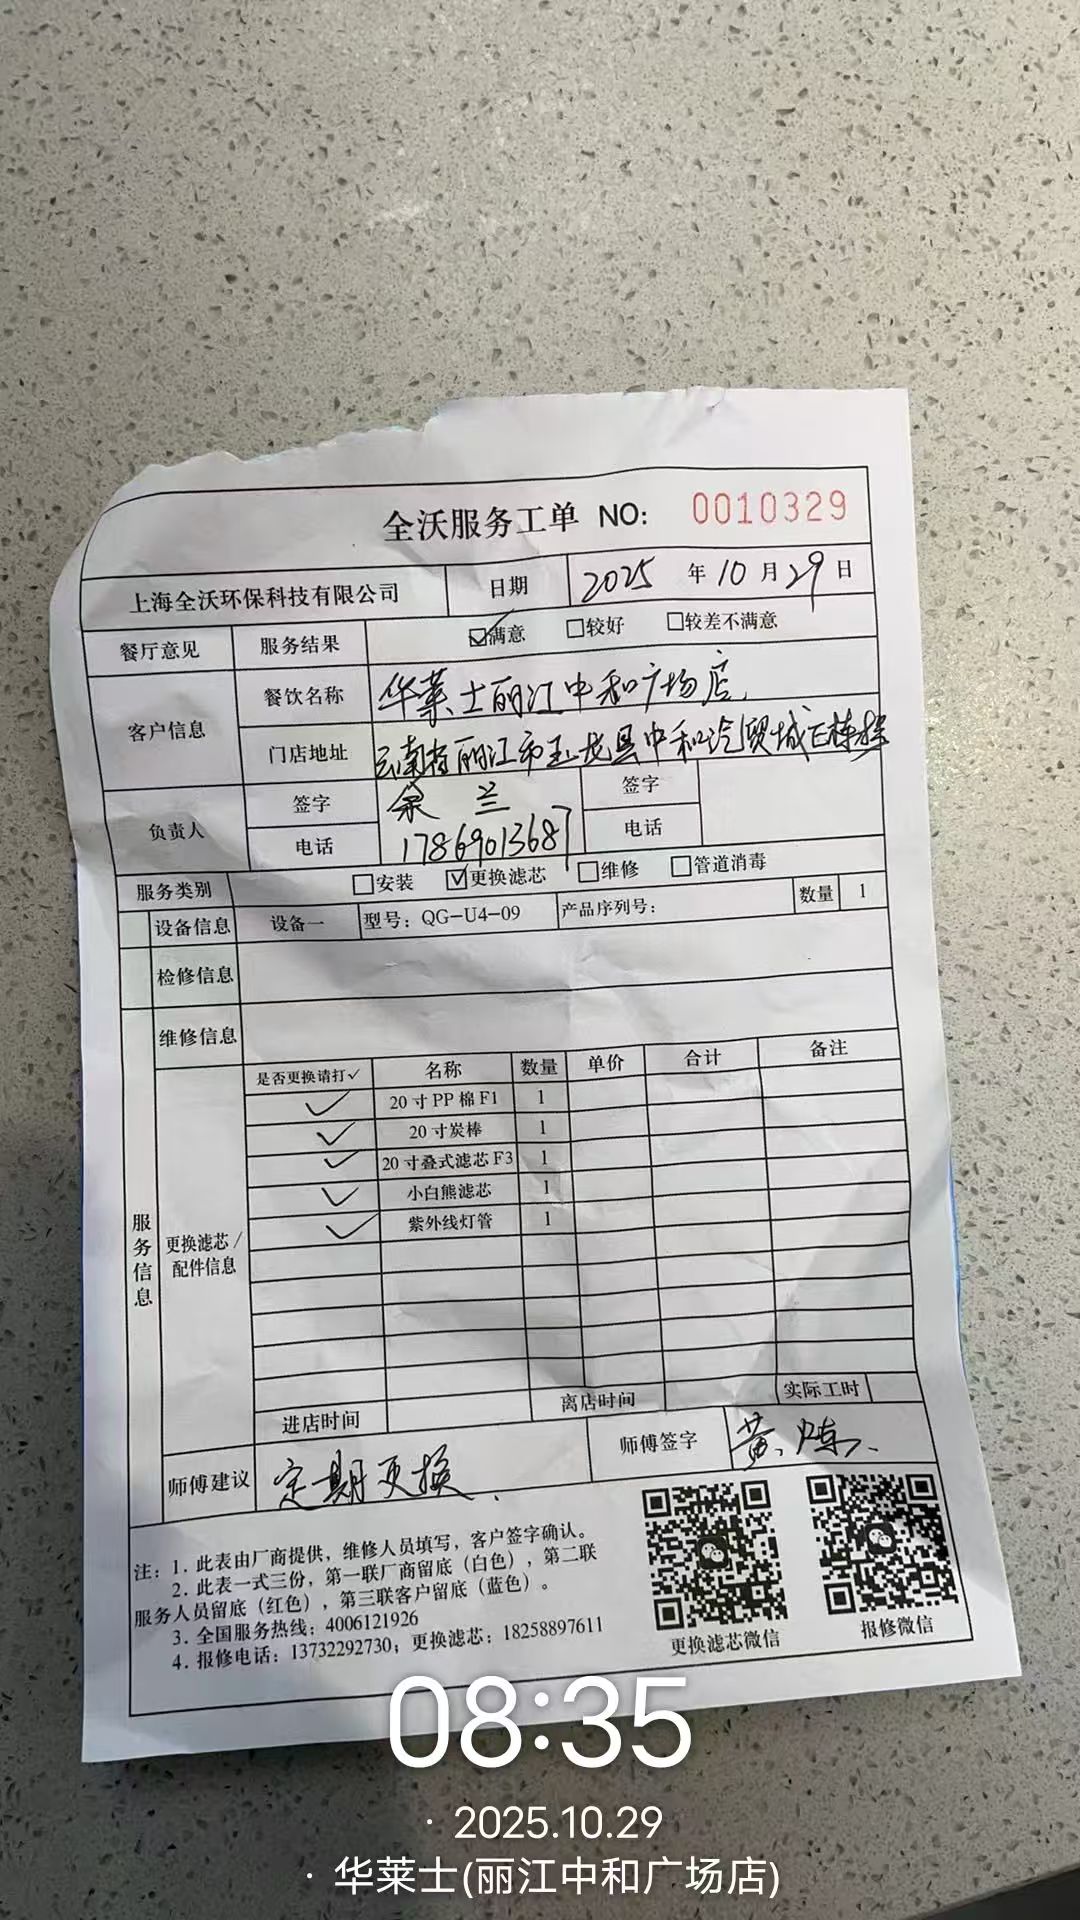 全沃服务工单 NO: 0010329
上海全沃环保科技有限公司 日期 2025 年 10 月 29 日
餐厅意见 服务结果 ☑满意 □较好 □较差不满意
客户信息 餐饮名称 华莱士丽江中和广场店
门店地址 云南省丽江市玉龙县中和汽贸城E栋
负责人 签字 余兰 签字
电话 17869013687 电话
服务类别 □安装 ☑更换滤芯 □维修 □管道消毒
设备信息 设备一 型号：QG-U4-09 产品序列号： 数量 1
检修信息
维修信息
服务信息
更换滤芯/配件信息
是否更换请打✓ 名称 数量 单价 合计 备注
✓ 20寸PP棉F1 1
✓ 20寸炭棒 1
✓ 20寸叠式滤芯F3 1
✓ 小白熊滤芯 1
✓ 紫外线灯管 1
进店时间 离店时间 实际工时
师傅建议 定期更换. 师傅签字 黄
注：1. 此表由厂商提供，维修人员填写，客户签字确认。
2. 此表一式三份，第一联厂商留底（白色），第二联
服务人员留底（红色），第三联客户留底（蓝色）。
3. 全国服务热线：4006121926
4. 报修电话：13732292730；更换滤芯：18258897611
更换滤芯微信 报修微信
08:35
· 2025.10.29
· 华莱士(丽江中和广场店)